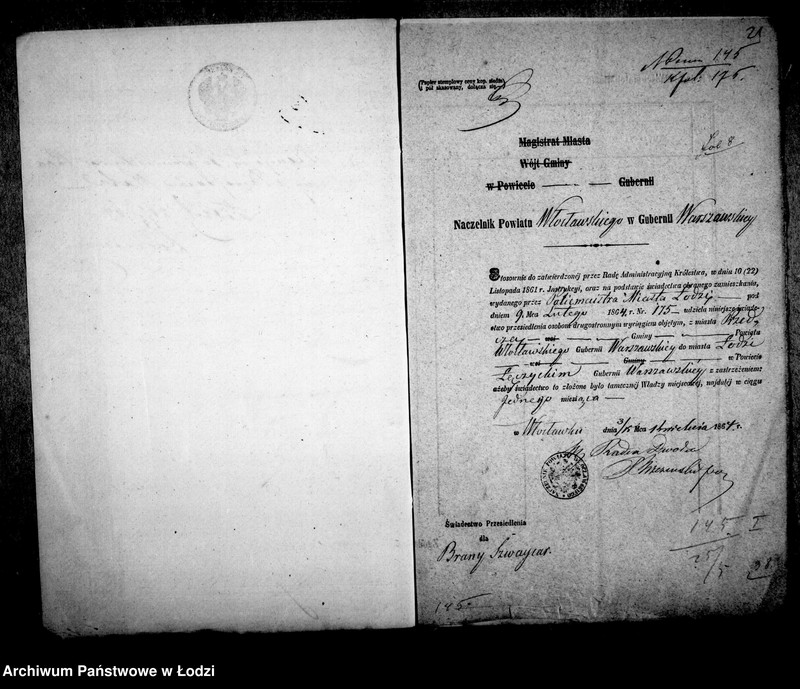 21
Num 145
Kpol: 175.
(Papier stemplowy ceny kop. siedm
i pół skasowany, dołącza się.)
Magistrat Miasta
Wójt Gminy
w Powiecie Gubernii
Naczelnik Powiatu Włocławskiego w Gubernii Warszawskiey
Stosownie do zatwierdzonéj przez Radę Administracyjną Królestwa, w dniu 10 (22)
Listopada 1861 r. Instrukcyi, oraz na podstawie świadectwa obranego zamieszkania,
wydanego przez Policmajstra Miasta Łodzi pod
dniem 9. Mca Lutego 1864 r. Nr. 175 udziela niniejsze świade-
ctwo przesiedlenia osobom drugostronnym wyciągiem objętym, z miasta Przed
czu wsi Gminy Powiatu
Włocławskiego Gubernii Warszawskiey do miasta Łodzi
wsi Gminy w Powiecie
Łęczyckim Gubernii Warszawskiey, z zastrzeżeniem:
ażeby świadectwo to złożone było tamecznej Władzy miejscowej, najdalej w ciągu
Jednego miesiąca
w Włocławku dnia 3/15 Mca 1864 r.
Świadectwo Przesiedlenia
dla
Brany Szwaycar.
145 I
25/5
145.
Archiwum Państwowe w Łodzi